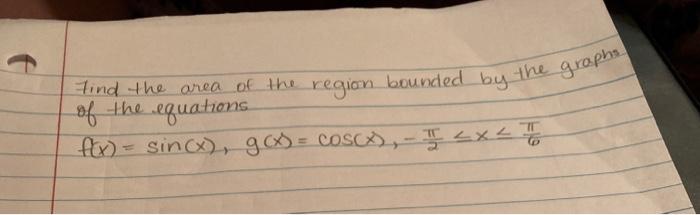 Find the area of the region bounded by the graphs
of the equations
f(x) = sin(x), g(x) = cos(x), -π/2 ≤ x ≤ π/6